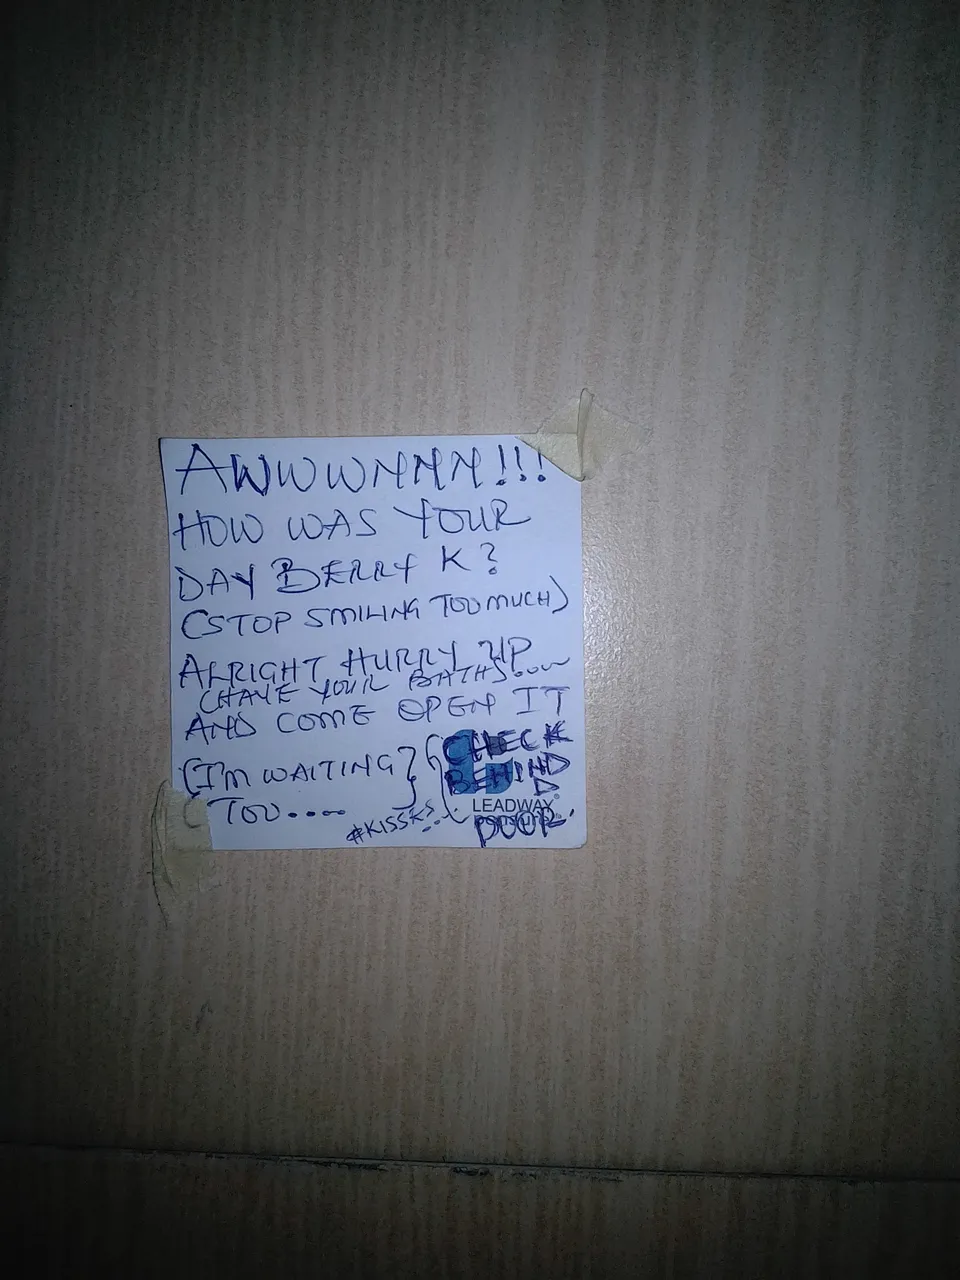 AWWWNNN!!!
HOW WAS YOUR
DAY BERRY K?
(STOP SMILING TOO MUCH)
ALRIGHT HURRY UP
(HAVE YOUR BATHS....
AND COME OPEN IT
(I'M WAITING}
TOO....
#KISSES...
{CHECK
BEHIND
D
DOOR.
LEADWAY